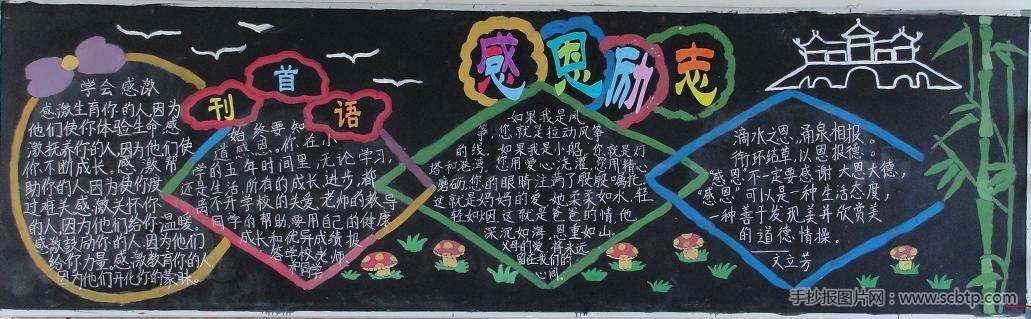 感恩励志
学会感激
感激生育你的人因为
他们使你体验生命.感
激抚养你的人因为他们使
你不断成长。感激帮
助你的人因为使你度
过难关感激关怀你
的人因为他们给你温暖。
感激鼓励你的人.因为他们
给你力量.感激教育你的人
因为他们开化你的蒙昧。
刊首语
始终要知
道感恩。你在小
学的五年时间里,无论学习,
还是生活,所有的成长进步,都
离不开学校的关爱,老师的教导
同学的帮助要用自己的健康
成长和优异成绩报
答学校老师
和同学
如果我是风
筝,您就是拉动风筝
的线,如果我是小船,您就是灯
塔和港湾,您用爱心浇灌,您用精心
磨砺,您的眼睛注满了殷殷嘱托.
这就是妈妈的爱,她柔柔如水,轻
轻如烟,这就是爸爸的情,他
深沉如海,恩重如山.
父母的爱,将永远
留在我们的
心间。
滴水之恩,涌泉相报。
衔环结草,以恩报德。
"感恩"不一定要感谢大恩大德,
"感恩"可以是一种生活态度,
一种善于发现美并欣赏美
的道德情操。
——文立芳
手抄报图片网:www.scbtp.com